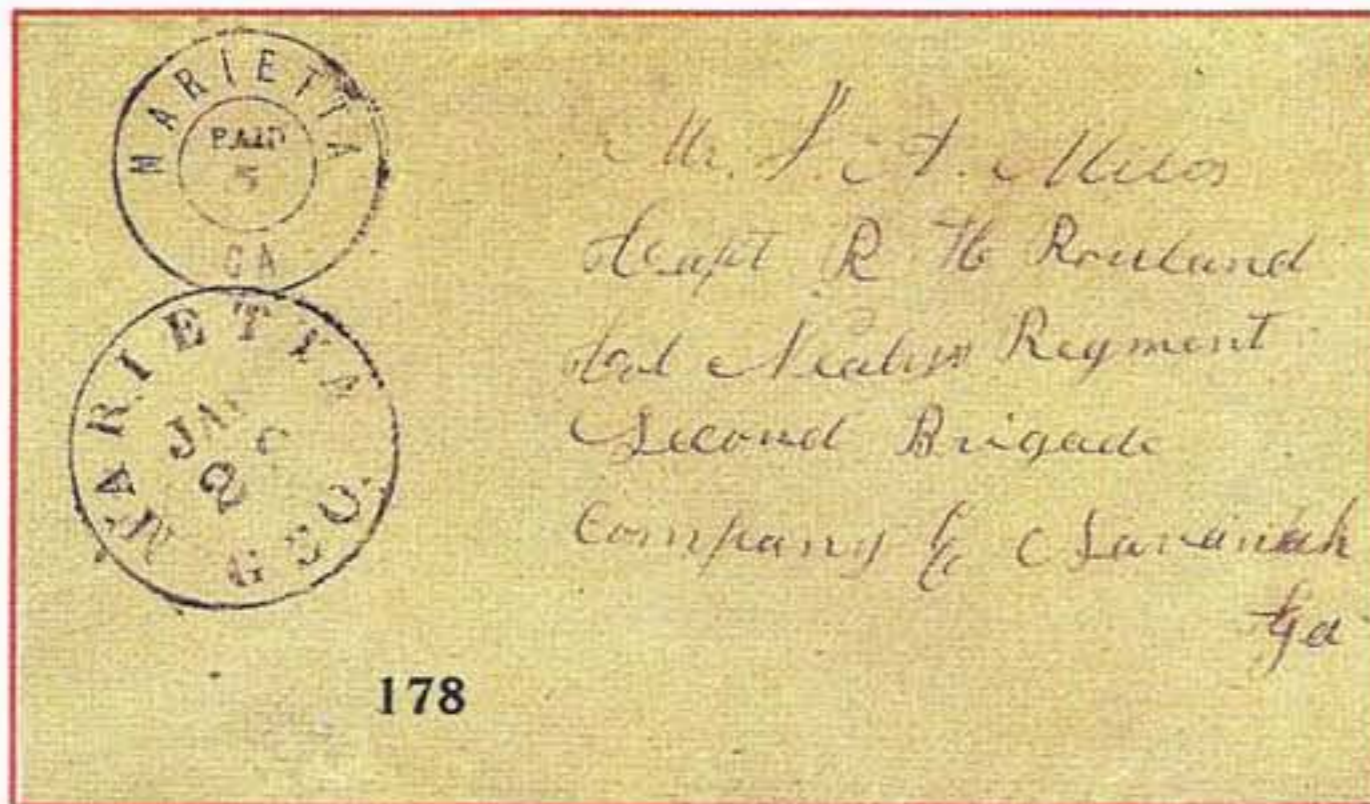 MARIETTA
PAID
5
GA
MARIETTA GEO
JAN
2
Mr. A. Miles
Capt R H Rowland
Col Regment
Second Brigade
Company E Savannah
Ga
178